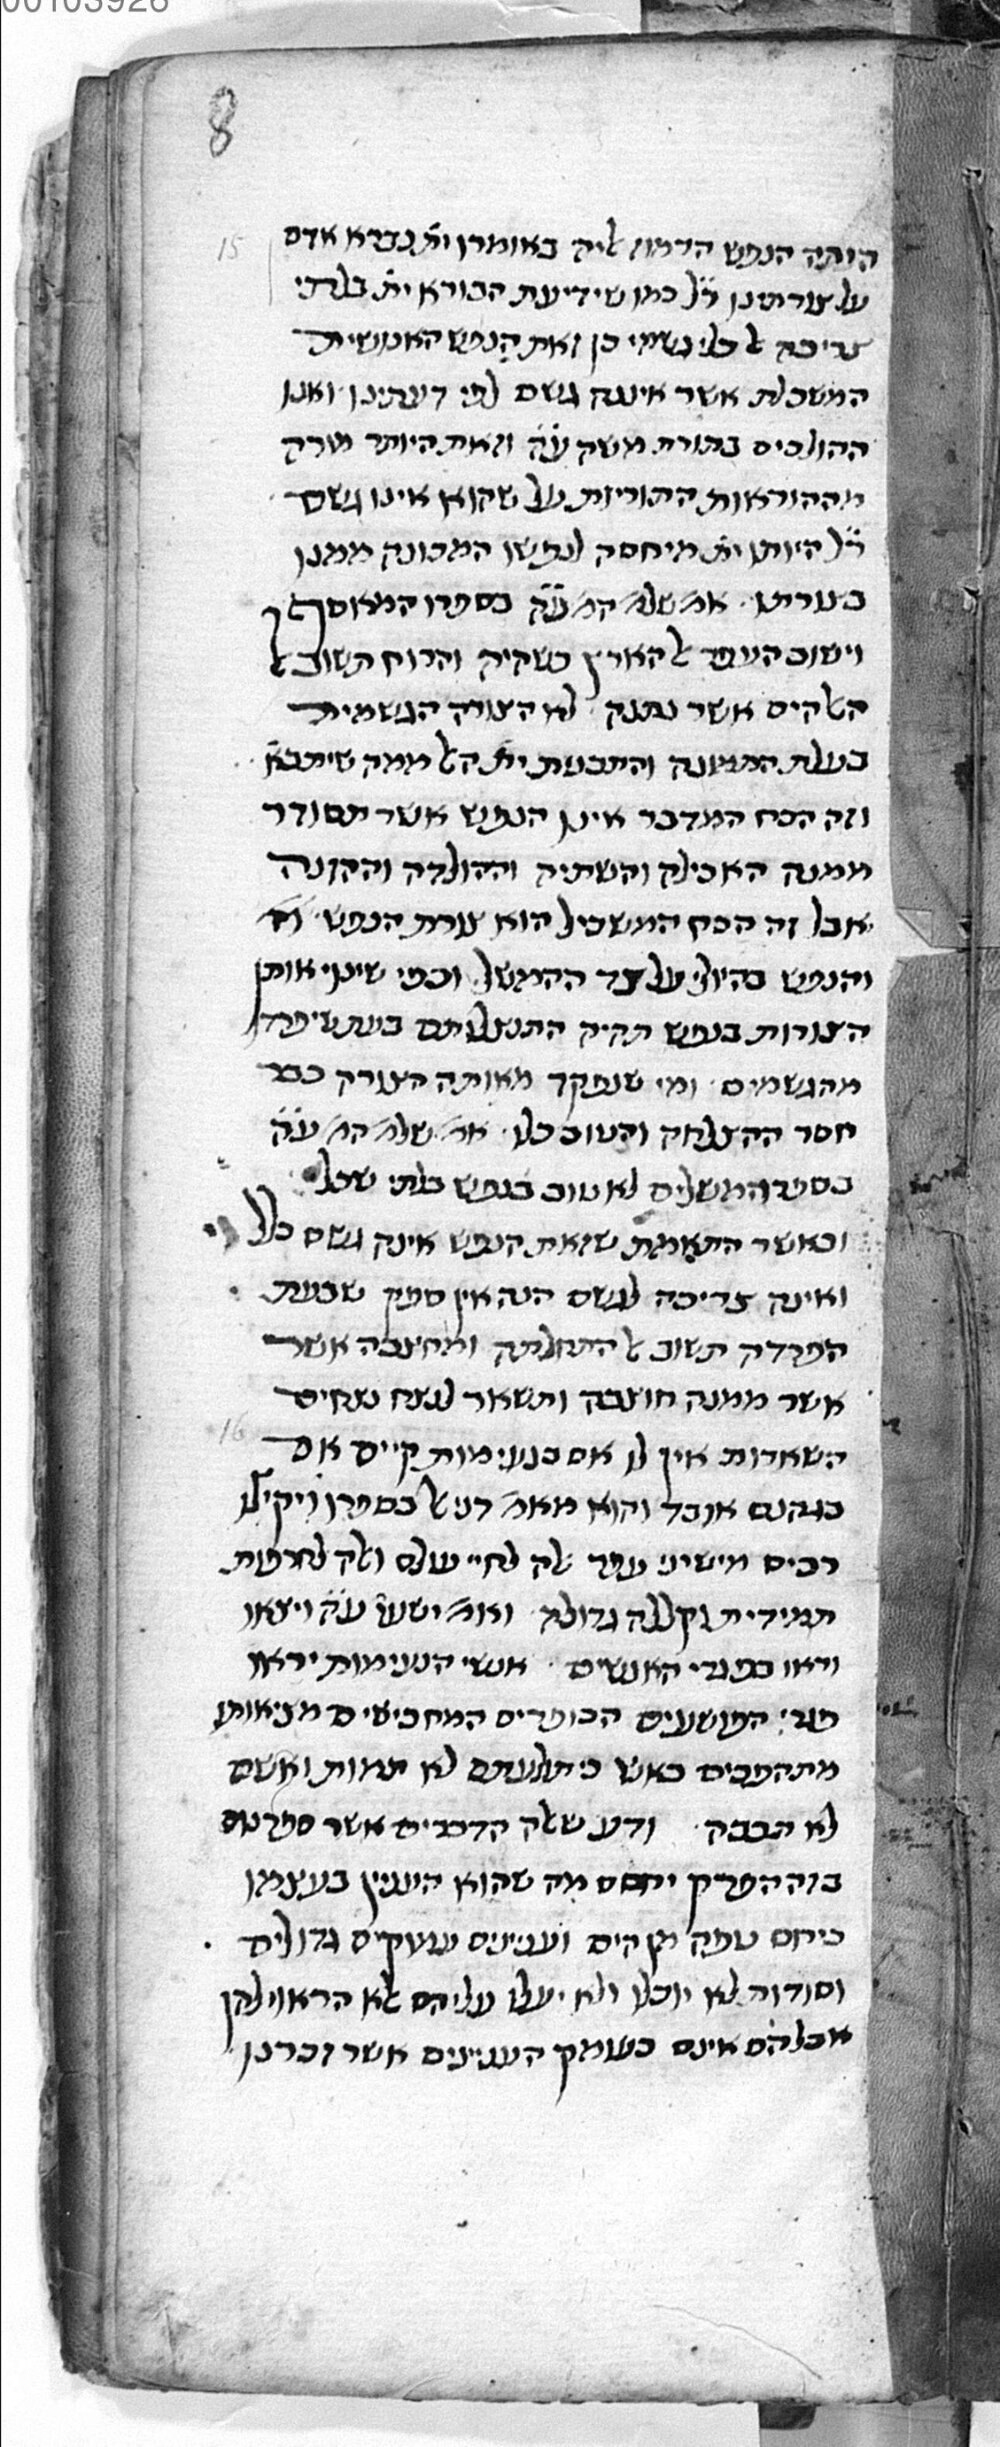 00103926
8
15
היותה הנפש הדמות אליה באומרו ית׳ נברא אדם
על צורתינו ר״ל כמו שידיעת הבורא ית׳ בלתי
צריכה לכלי גשמי כן זאת הנפש האנושית
המשכלת אשר איננה גשם לפי דעתינו ואנו
ההולכים בתורת משה ע״ה וזאת היותר חזקה
מההוראות התוריות על שהוא אינו גשם
ר״ל היותו ית׳ מיחסה לנפשו המכונה ממנו
בצורתו אמ׳ שלמ׳ המ׳ ע״ה בספרו המאוסף
וישוב העפר אל הארץ כשהיה והרוח תשוב אל
האלהים אשר נתנה לא הצורה הגשמית
בעלת התמונה והתבנית ית׳ האל ממה שיתבא׳
וזה הכח המדבר אינו הנפש אשר תסודר
ממנה האכילה והשתיה וההולדה וההזנה
אבל זה הכח המשכיל הוא צורת הנפש
והנפש בהיולי על צד ההמשל וכפי שינוי אותן
הצורות בנפש תהיה התנצלותם בעת שיפרד
מהגשמים ומי שנפקד מאותה הצורה כבר
חסר ההצלחה והטוב כלו אמ׳ שלמ׳ המ׳ ע״ה
בספר המשלים לא טוב בנפש בלתי שכל
וכאשר התאמת שזאת הנפש אינה גשם כלל
ואינה צריכה לגשם הנה אין ספק שבעת
הפרדה תשוב אל התחלתה ומחצבה אשר
אשר ממנה חוצבה ותשאר לנצח נצחים
16
השארות אין לו אם בנעימות קיים אם
בגהנם אובד והוא מאמ׳ דניאל בספרו ויקיצו
רבים מישיני עפר אלה לחיי עולם ואלה לחרפות
תמידית וקללה גדולה ואמ׳ ישע׳ ע״ה ויצאו
וראו בפגרי האנשים אנשי הנעימות יראו
פגרי הפושעים הכופרים המכחישים מציאותו
מתהפכים באש כי תולעתם לא תמות ואשם
לא תכבה ודע שאלה הדברים אשר ספרנום
בזה הפרק יחסם מה שהוא הענין בעצמו
כיחס טפה מן הים ועניינים עמוקים גדולים
וסודות לא יוכלו ולא יעלו עליהם אלא הראוי להן
אבל הם אינם כעומק העניינים אשר זכרנו